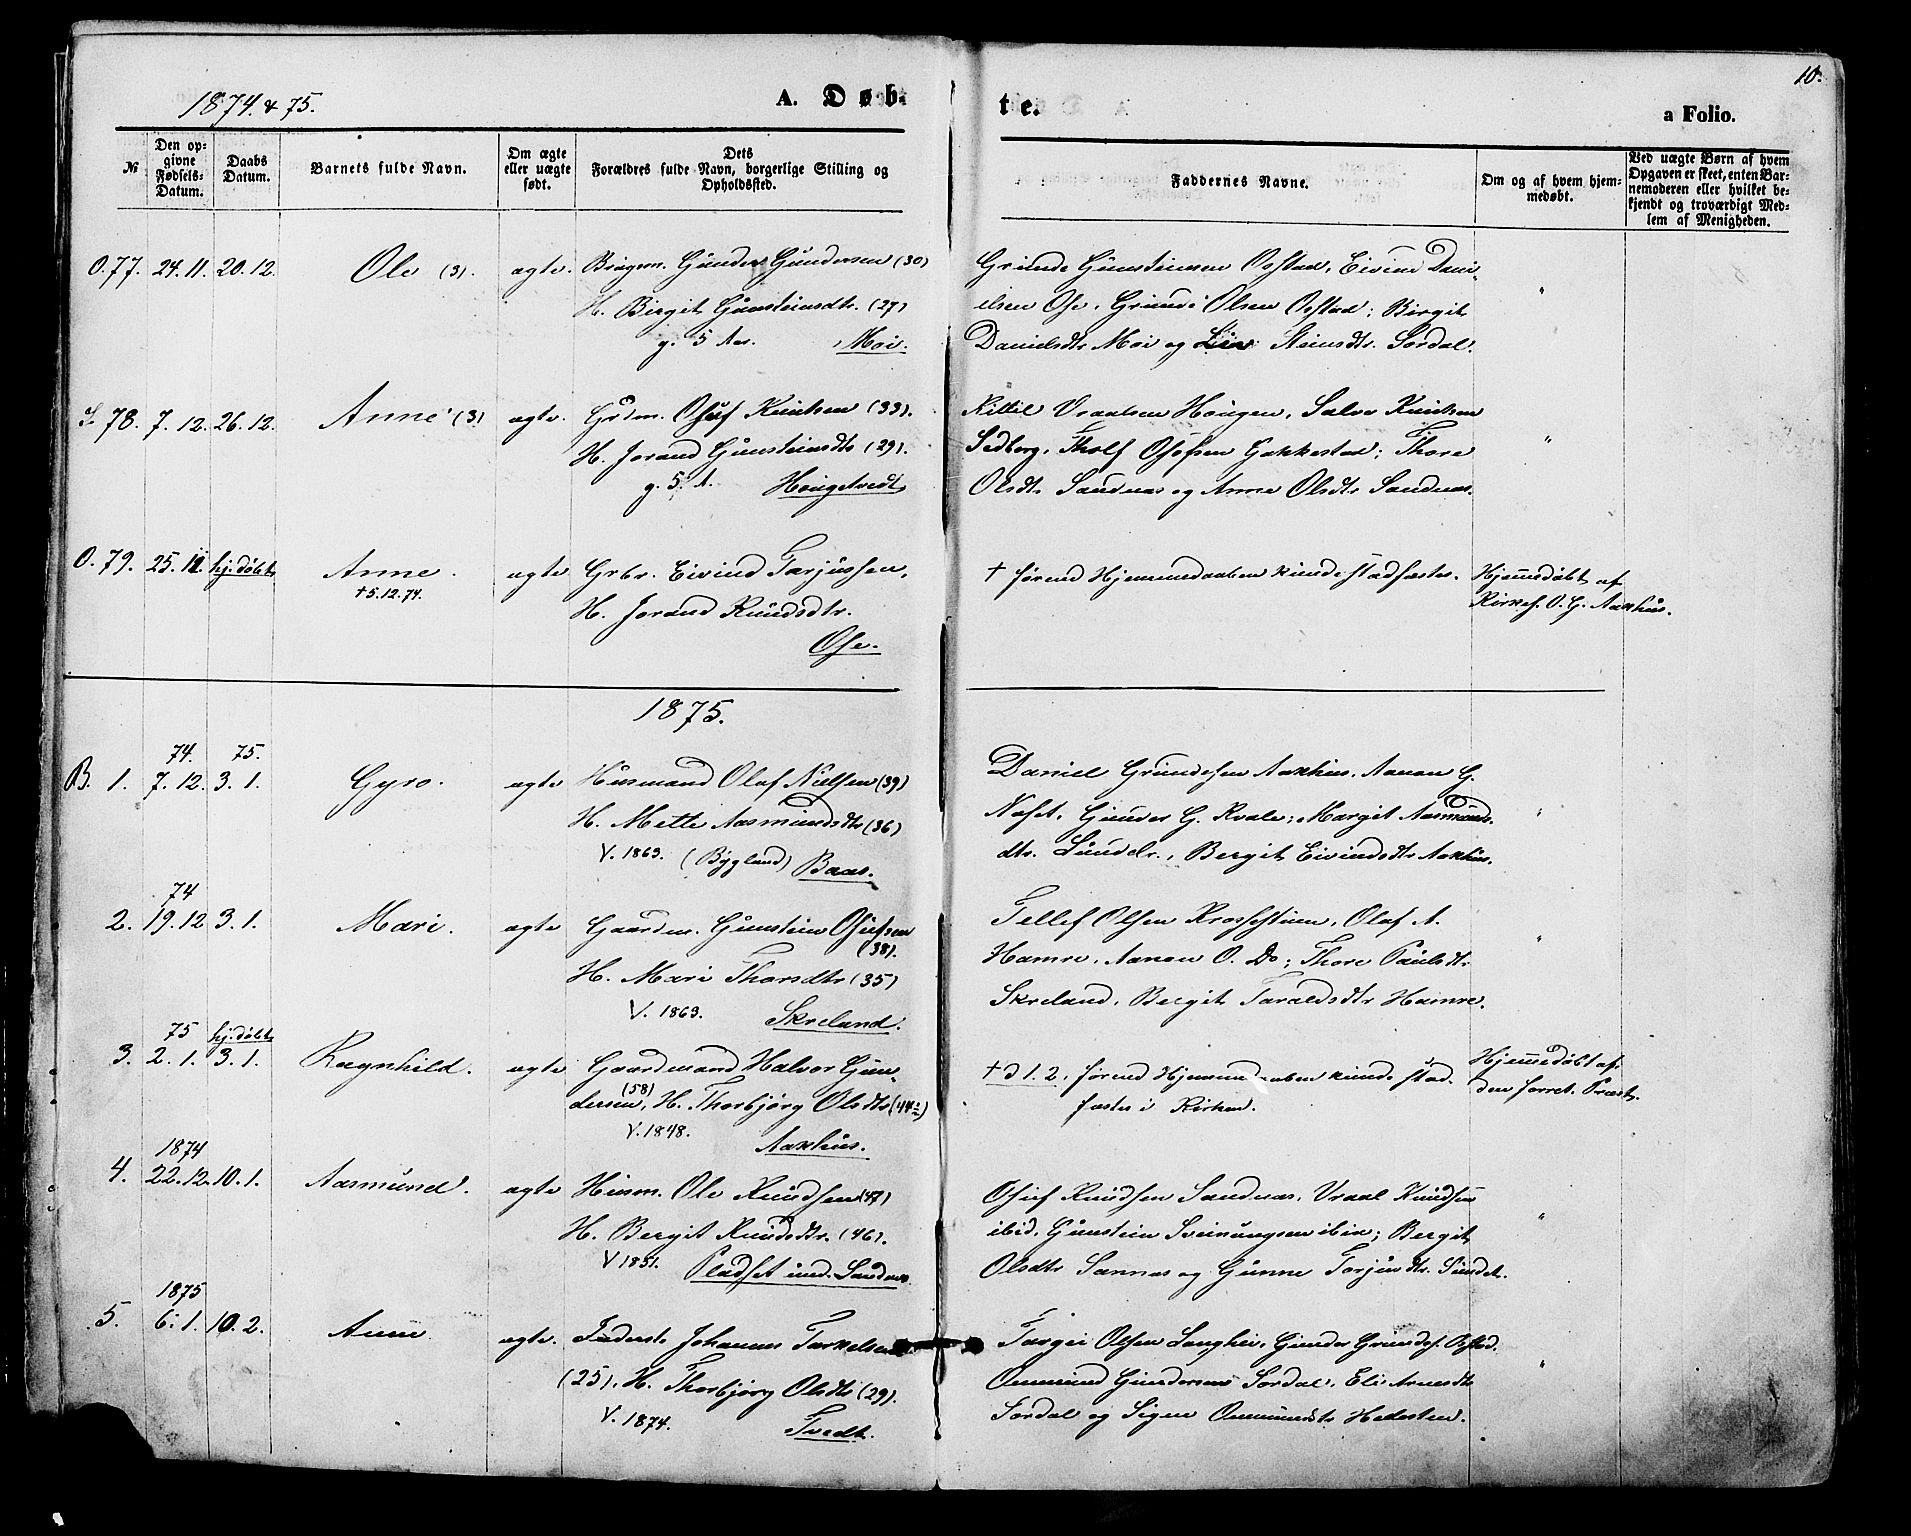 1874 & 75.
A. Døb-
te.
10.
a Folio.
№
Den op-
givne
Fødsels-
Datum.
Daabs
Datum.
Barnets fulde Navn.
Om ægte
eller uægte
født.
Dets
Forældres fulde Navn, borgerlige Stilling og
Opholdssted.
Faddernes Navne.
Om og af hvem hjem-
medøbt.
Ved uægte Børn af hvem
Opgaven er skeet, enten Bar-
nemoderen eller hvilket be-
kjendt og troværdigt Med-
lem af Menigheden.
O. 77. 24.11. 20.12. Ole (3). ægte. Brugm. Gunder Gundersen (30)
H. Birgit Gunsteinsdtr. (27)
g. 5 Aar. Moi.
Grunde Gunsteinsen Oostad, Eivind Dani-
elsen Ose, Grunde Olsen Oostad; Birgit
Danielsdtr Moi og Liv Steinsdtr. Sordal.
"
78. 7.12. 26.12. Anne (3) ægte. Grdm. Osuf Knutsen (33).
H. Jorand Gunsteinsdtr (29).
g. 5. A. Hougetvedt
Kittil Vraalsen Hougen, Salve Knutsen
Sedberg, Tholf Osufsen Gakkestad; Thore
Olsdtr Sandnæs og Anne Olsdtr Sandnæs.
"
O. 79. 25.11. hj.døbt Anne. ægte Grbr. Eivind Tarjussen,
† 5.12.74.
H. Jorand Knudsdtr.
Ose.
† førend Hjemmedaaben kunde stadfæstes.
Hjemmedøbt af
Kirkes. O. G. Aakhus.
1875.
74. 75.
B. 1. 7.12. 3.1. Gyro. ægte Husmand Olaf Nielsen (39)
H. Mette Aasmundsdtr (36)
V. 1863. (Bygland) Baas.
Daniel Grundesen Aakhus, Aanon G.
Næset, Gunder G. Kvale; Margit Aasmunds-
dtr. , Bergit Eivindsdtr Aakhus.
"
74
2. 19.12 3.1. Mari. ægte Gaardm. Gunstein Osufsen
(38).
H. Mari Thorsdtr (35)
V. 1863. Skreland.
Tellef Olsen Krossestuen, Olaf A.
Hamre, Aanon O. Do; Thore Paulsdtr
Skreland, Bergit Taraldsdtr Hamre.
"
75 hj.døbt
3. 2.1. 3.1. Ragnhild. ægte Gaardmand Halvor Gun-
(58)
dersen, H. Thorbjørg Olsdtr (44)
V. 1848. Aakhus.
† d 1. 2. førend Hjemmedaaben kunde stad-
fæstes i Kirken.
Hjemmedøbt af
den forret. Præst.
1874
4. 22.12. 10.1. Aasmund. ægte Husm. Ole Knudsen (47)
H. Bergit Knudsdtr. (46).
V 1851. Pladset und. Sandnæs
Osuf Knudsen Sandnæs, Vraal Knudsen
ibid, Gunstein Sveinungsen ibid; Bergit
Olsdtr Sannæs og Gunne Torjusdtr. Sundet.
"
1875
5. 6.1. 10.2. Anne ægte. Inderst. Johannes Tarkelsen
(25), H. Thorbjørg Olsdtr (29).
V. 1874. Tvedt.
Targei Olsen Langhei, Gunder Grundes. Oostad.
Ommund Gundersen Sordal, Eli Arnesdtr
Sordal og Signe Ommundsdtr Hedesten.
"